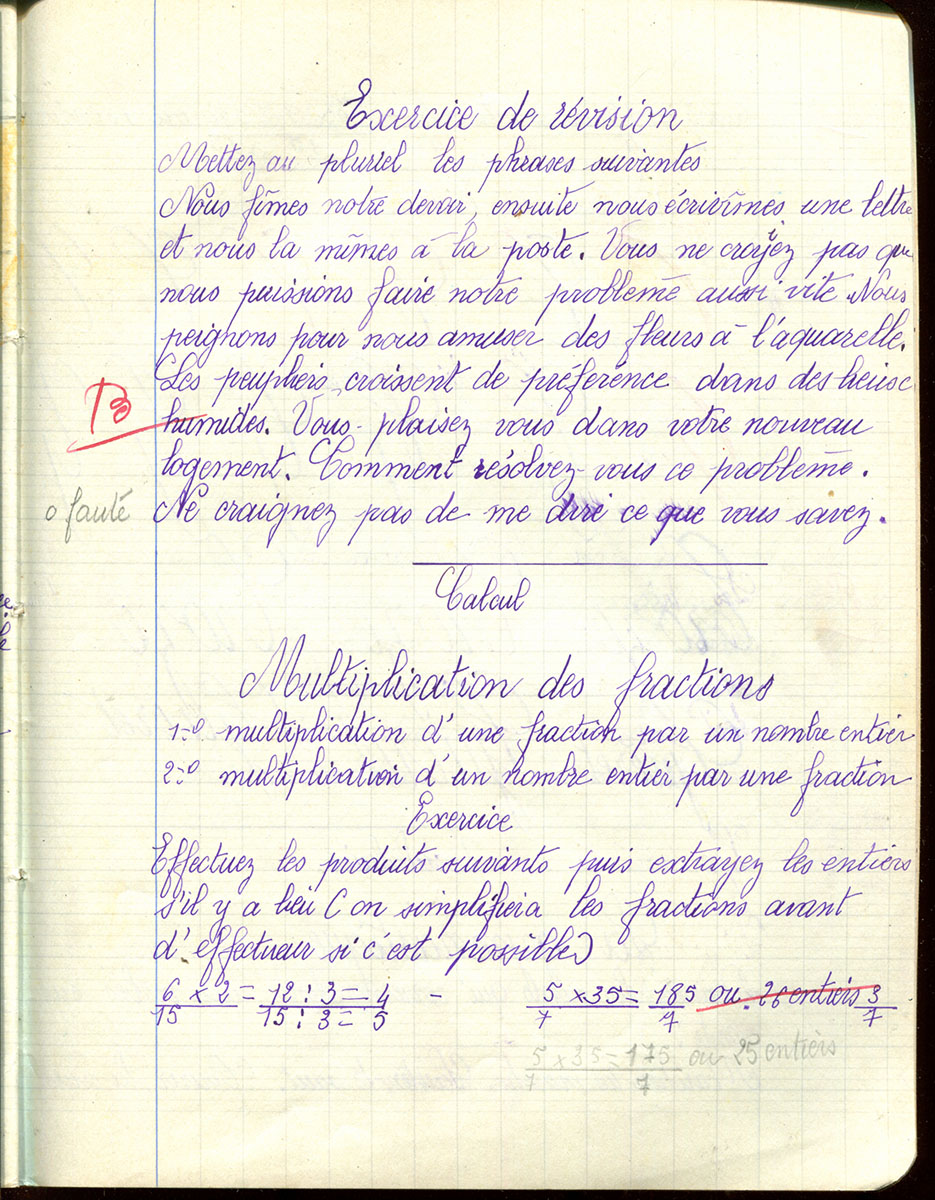 Exercice de révision
Mettez au pluriel les phrases suivantes
Nous fîmes notre devoir, ensuite nous écrivîmes une lettre
et nous la mîmes à la poste. Vous ne croyiez pas que
nous puissions faire notre problème aussi vite. Nous
peignons pour nous amuser des fleurs à l'aquarelle.
Les peupliers croissent de préférence dans des lieux
B
humides. Vous plaisez vous dans votre nouveau
logement. Comment résolvez-vous ce problème.
0 faute
Ne craignez pas de me dire ce que vous savez.
Calcul
Multiplication des fractions
1-o multiplication d'une fraction par un nombre entier
2-o multiplication d'un nombre entier par une fraction
Exercice
Effectuez les produits suivants puis extrayez les entiers
s'il y a lieu (on simplifiera les fractions avant
d'effectueur si c'est possible)
6 x 2 = 12 : 3 = 4 - 5 x 35 = 185 ou 26 entiers 3
15 15 : 3 = 5 7 7 7
5 x 35 = 175 ou 25 entiers
7 7